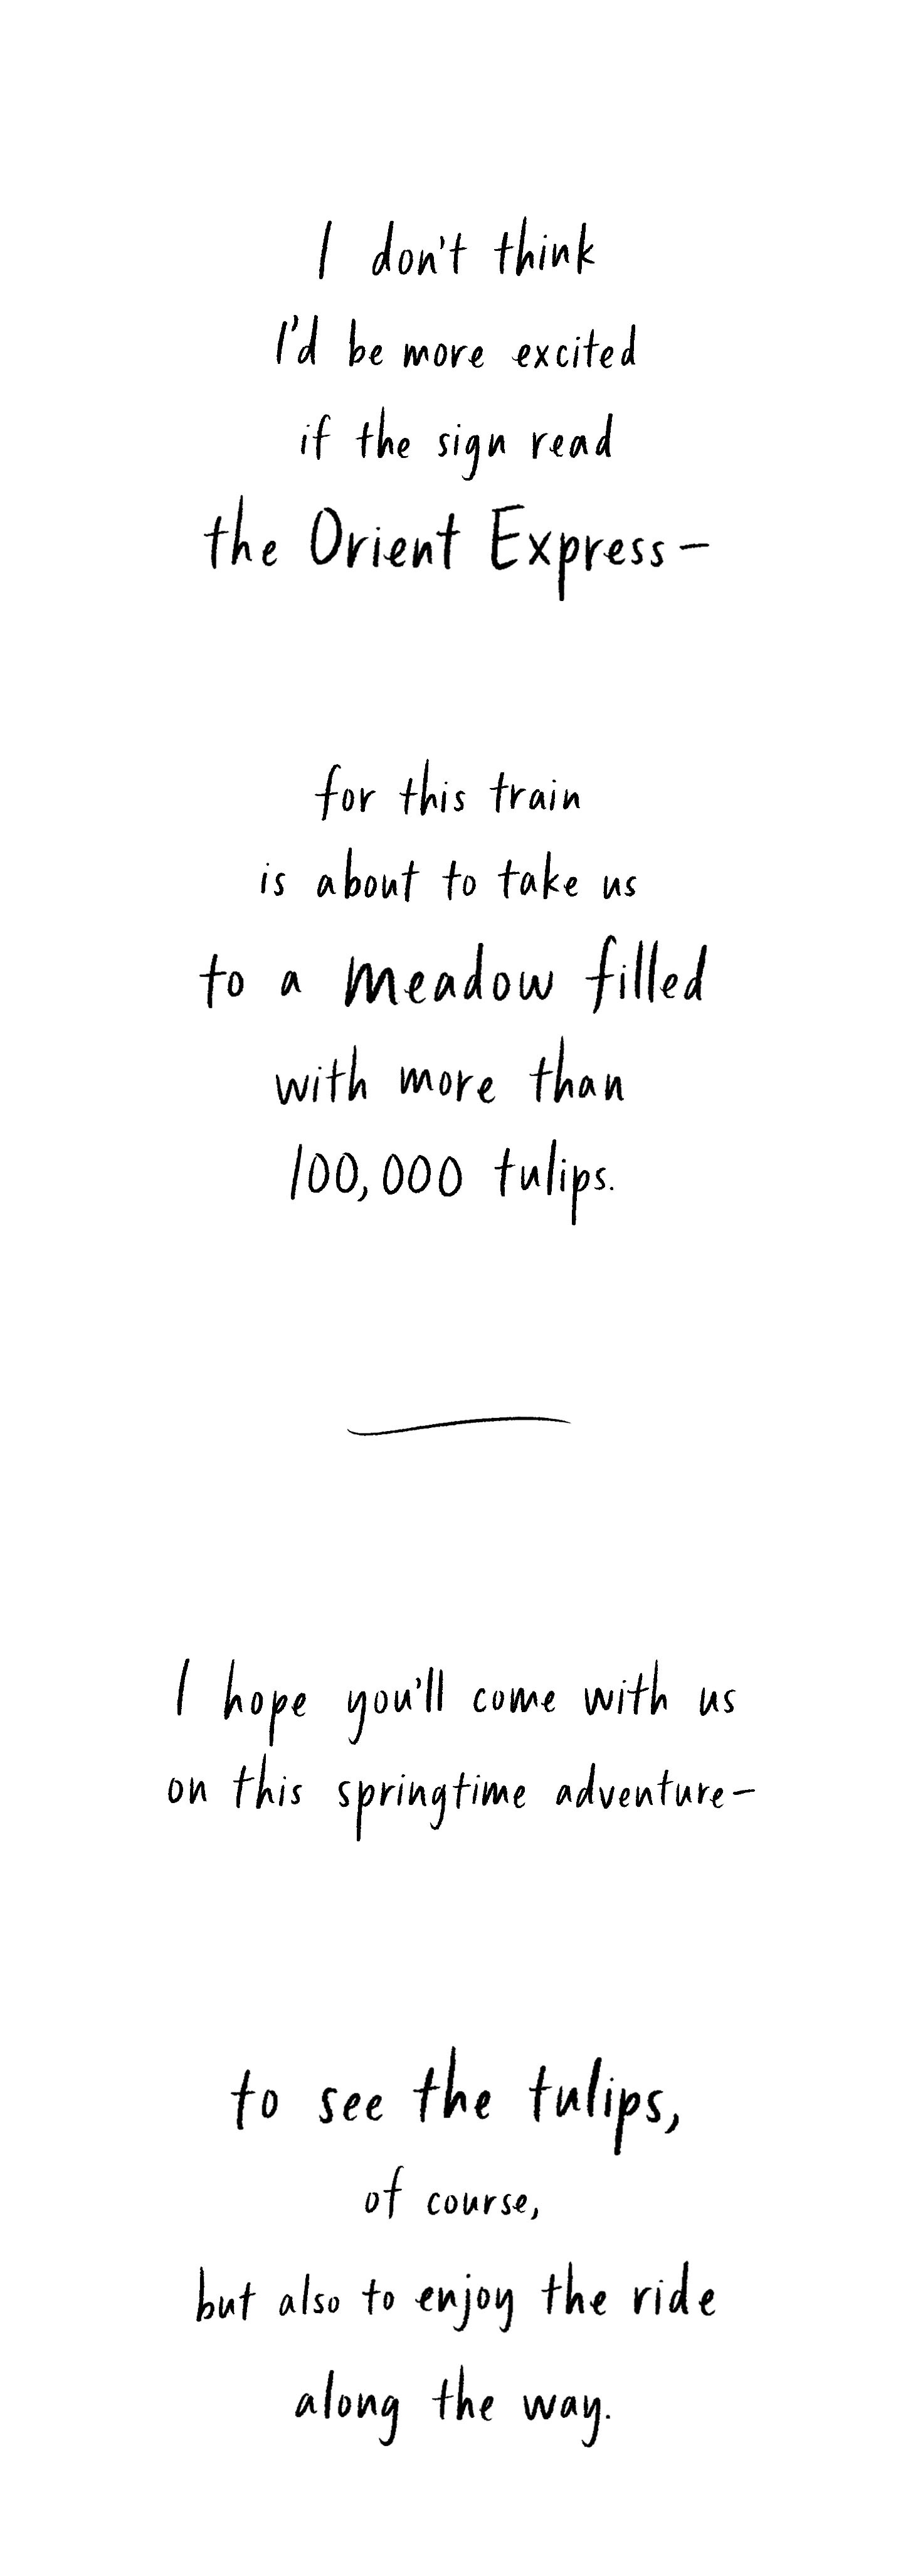 I don't think
I'd be more excited
if the sign read
the Orient Express—
for this train
is about to take us
to a meadow filled
with more than
100,000 tulips.
I hope you'll come with us
on this springtime adventure—
to see the tulips,
of course,
but also to enjoy the ride
along the way.